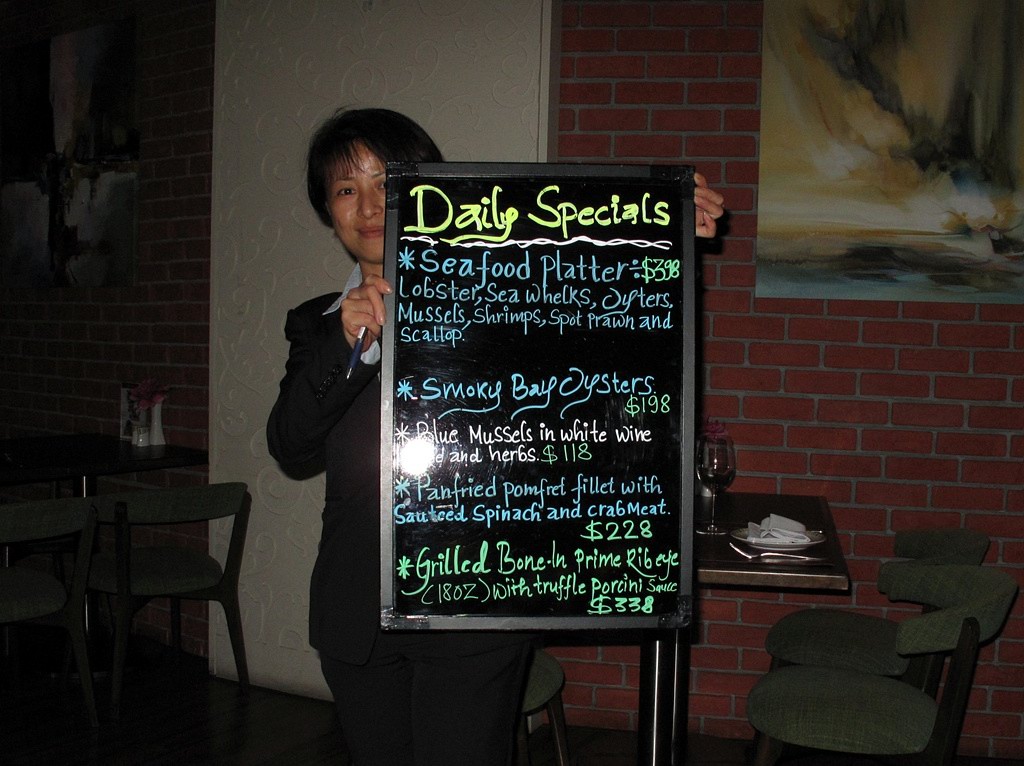 Daily Specials
*Seafood Platter:$398
Lobster, Sea whelks, Oysters,
Mussels, Shrimps, Spot Prawn and
Scallop.
*Smoky Bay Oysters
$198
*Blue Mussels in white wine
and herbs.$118
*Panfried pomfret fillet with
Sauteed Spinach and crab Meat.
$228
*Grilled Bone-In Prime Rib eye
(18OZ) with truffle porcini Sauce
$338